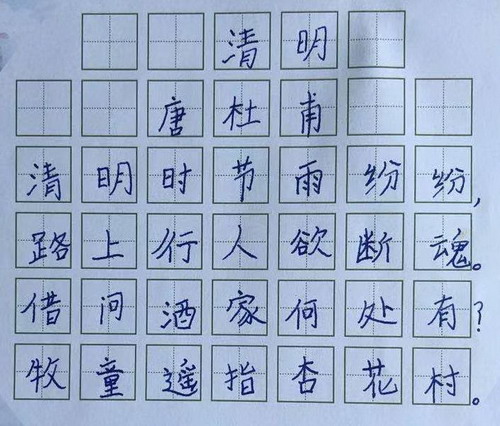 清明
唐杜甫
清明时节雨纷纷,
路上行人欲断魂。
借问酒家何处有?
牧童遥指杏花村。